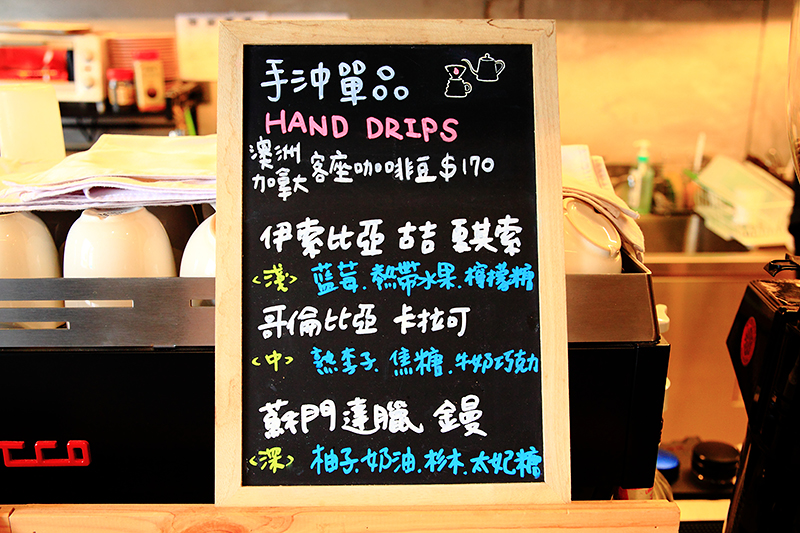 手沖單品
HAND DRIPS
澳洲
加拿大 客座咖啡豆 $170
伊索比亞 古吉 夏其索
<淺> 藍莓.熱帶水果.檸檬糖
哥倫比亞 卡拉可
<中> 熟李子.焦糖.牛奶巧克力
蘇門達臘 金曼
<深> 柚子.奶油.杉木.太妃糖